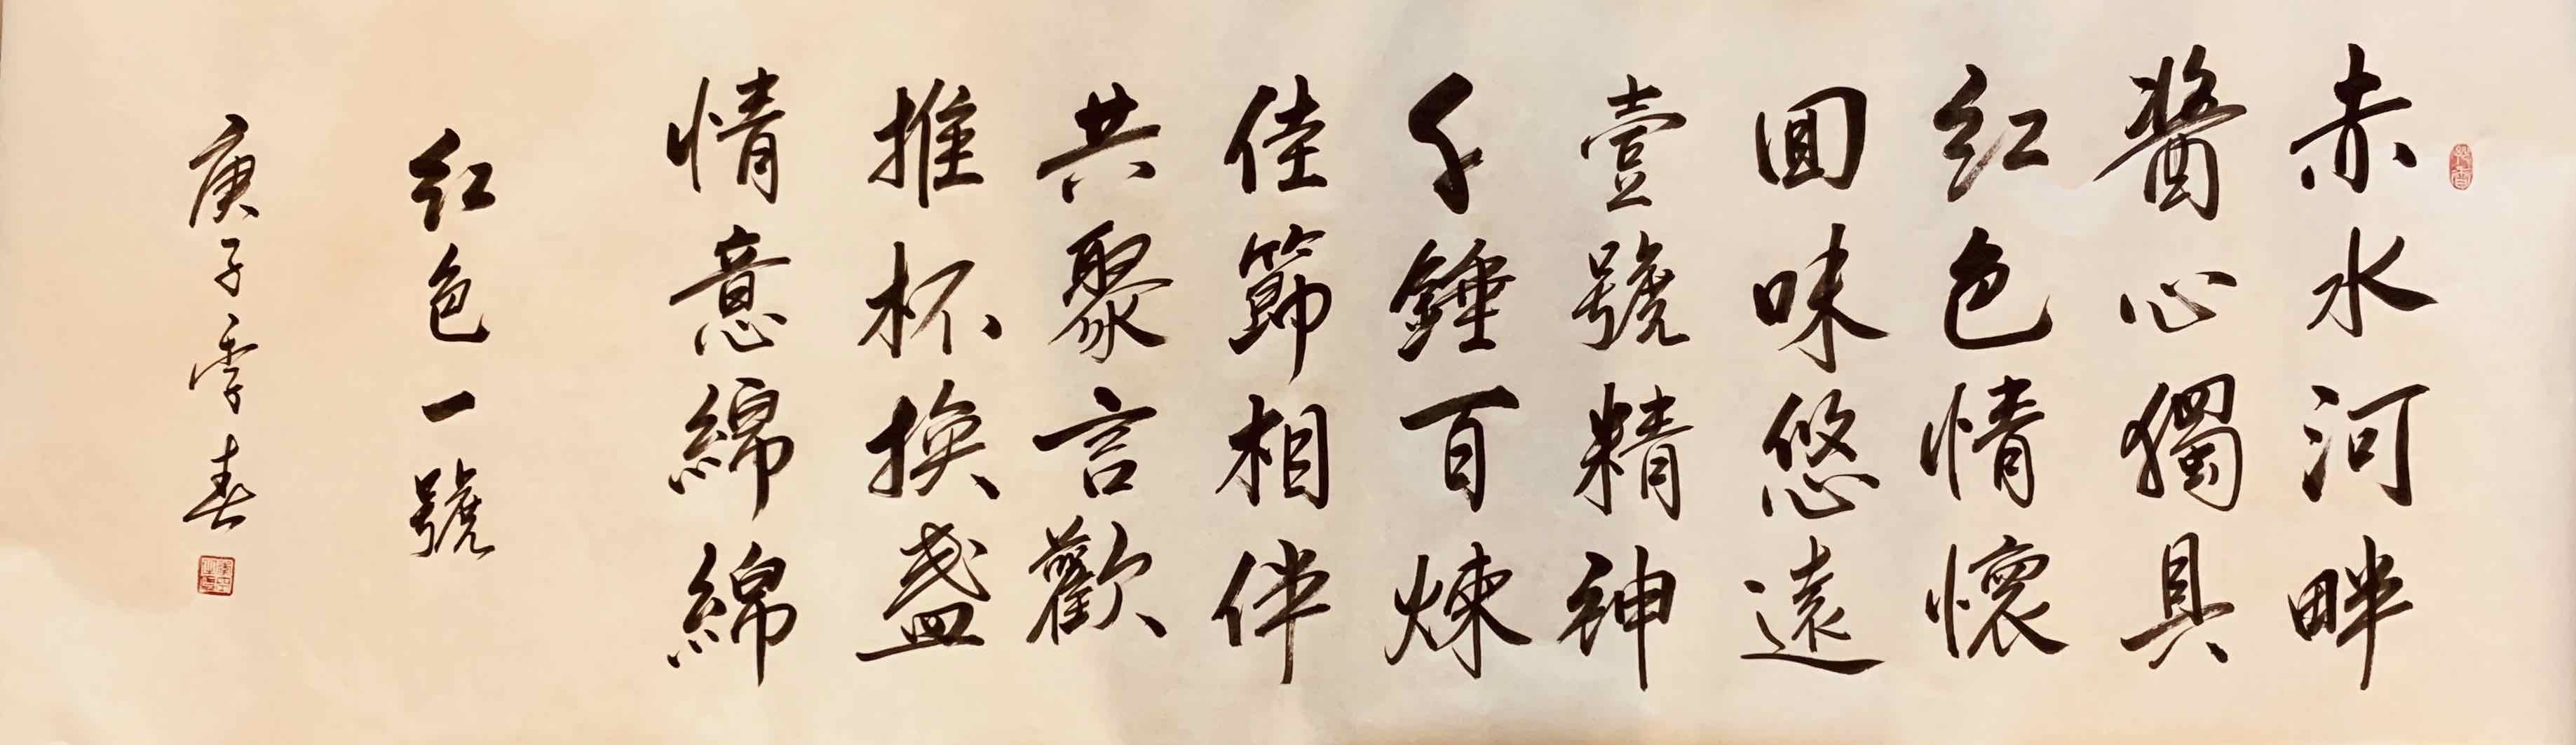 赤水河畔
醬心獨具
红色情懷
回味悠遠
壹號精神
千錘百煉
佳節相伴
共聚言歡
推杯换盞
情意綿綿
红色一號
庚子季春